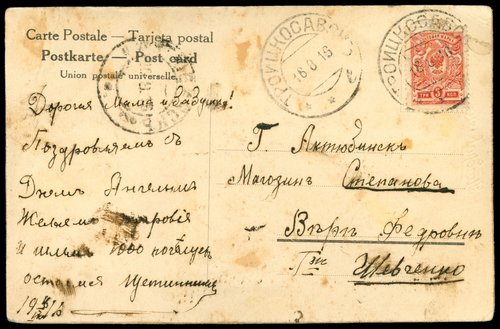 Carte Postale — Tarjeta postal
Postkarte — Post card
Union postale universelle.
ТРОИЦКОСАВСКЪ
16 8 16
ТРОИЦКОСАВСКЪ
3
ТРИ КОП
Дорогія Мама и бабушка!
Поздровляемъ съ
Днемъ Ангелый
Желаем здоровія
и шлем 1000 поцелуев
остаемся
19
Г. Актюбинскъ
Магазинъ Степанова
Въръ Федровнъ
Г-жѣ
Шевченко